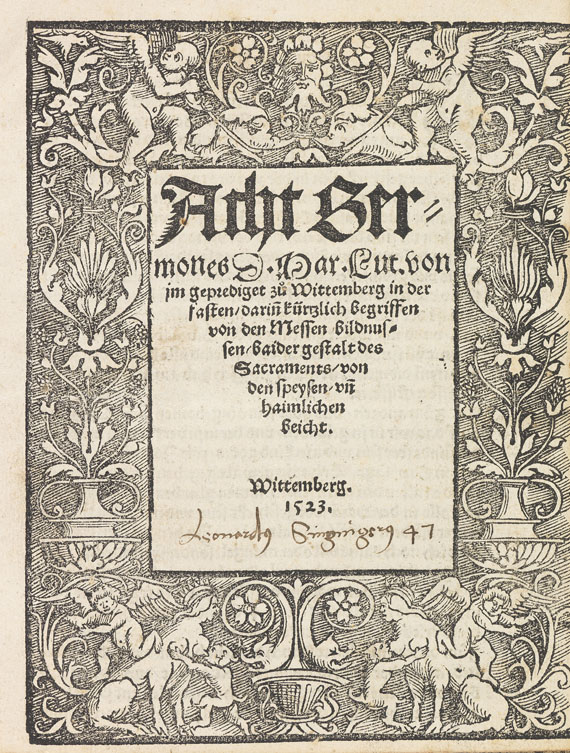 Acht Ser⸗
mones D. Mar. Lut. von
jm geprediget zů Wittemberg in der
fasten/ darin̄ kürtzlich begriffen
von den Messen bildnus⸗
sen/ baider gestalt des
Sacraments/ von
den speysen/ vn̄
haimlichen
beicht.
Wittemberg.
1523.
Leonardus 47